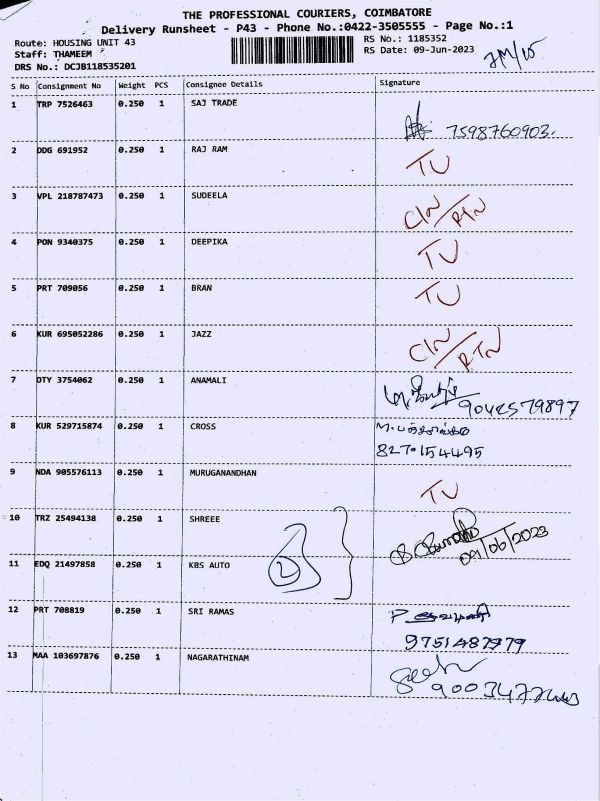 THE PROFESSIONAL COURIERS, COIMBATORE
Delivery Runsheet - P43 - Phone No.:0422-3505555 - Page No.:1
Route: HOUSING UNIT 43
RS No.: 1185352
Staff: THAMEEM
RS Date: 09-Jun-2023
DRS No.: DCJB118535201
S No Consignment No Weight PCS Consignee Details Signature
1 TRP 7526463 0.250 1 SAJ TRADE
7598760903
2 DDG 691952 0.250 1 RAJ RAM TU
3 VPL 218787473 0.250 1 SUDEELA CIN/RTN
4 PON 9340375 0.250 1 DEEPIKA TU
5 PRT 709056 0.250 1 BRAN TU
6 KUR 695052286 0.250 1 JAZZ CIN/RTN
7 DTY 3754062 0.250 1 ANAMALI
8 KUR 529715874 0.250 1 CROSS
8270154495
9 NDA 905576113 0.250 1 MURUGANANDHAN TU
10 TRZ 25494138 0.250 1 SHREEE
09/06/2023
11 EDQ 21497858 0.250 1 KBS AUTO 2
12 PRT 708819 0.250 1 SRI RAMAS
9751487979
13 MAA 103697876 0.250 1 NAGARATHINAM